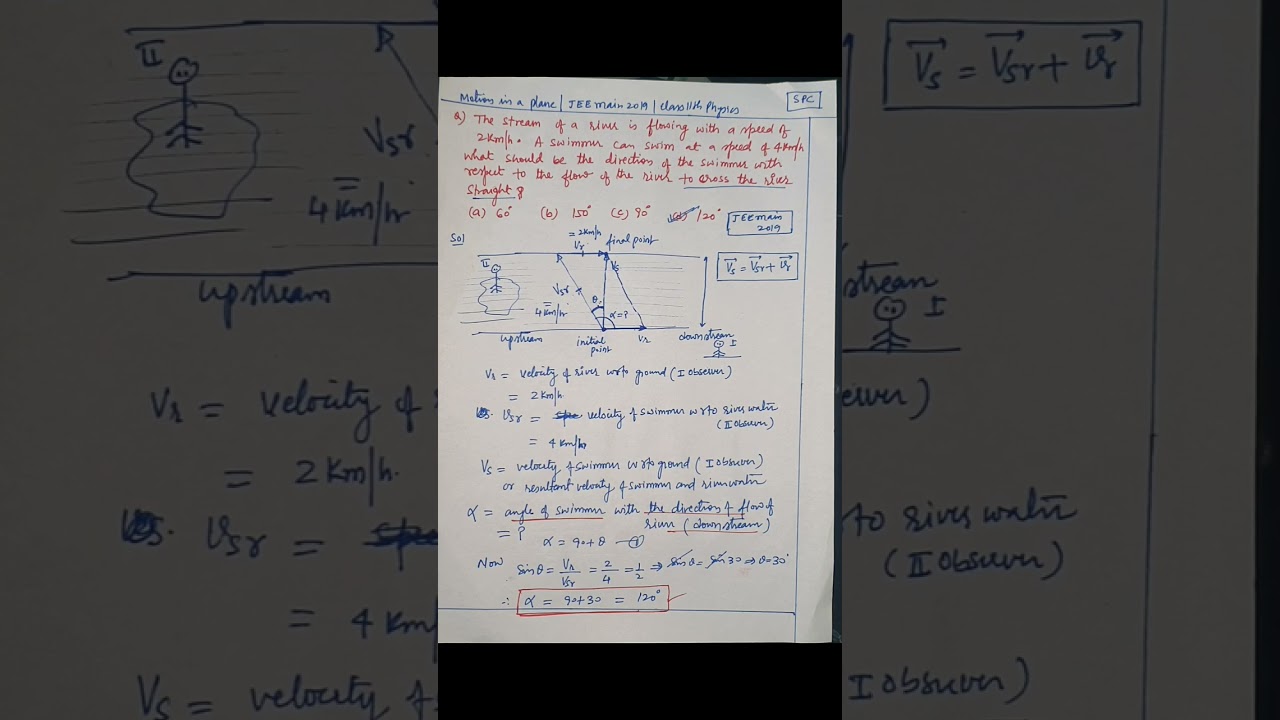 Motion in a plane | JEE main 2019 | class 11th Physics
SPC
Q) The stream of a river is flowing with a speed of
2Km/h. A swimmer can swim at a speed of 4km/h
what should be the direction of the swimmer with
respect to the flow of the river to cross the river
straight ?
(a) 60° (b) 150° (c) 90° (d) 120°
JEE main
2019
Sol
= 2km/h
Vr
final point
II
Vs
Vs = Vsr + Vr
Vsr
4Km/hr
θ
α = ?
upstream
initial
point
Vr
downstream
I
Vr = velocity of river w.r.to ground (I observer)
= 2km/h.
Vsr = velocity of swimmer w.r.to river water
(II observer)
= 4 km/hr
Vs = velocity of swimmer w.r.to ground (I observer)
or resultant velocity of swimmer and river water
α = angle of swimmer with the direction of flow of
river (downstream)
= ?
α = 90+θ —①
Now sinθ = Vr/Vsr = 2/4 = 1/2 ⇒ sinθ = sin30 ⇒ θ=30°
∴ α = 90+30 = 120°